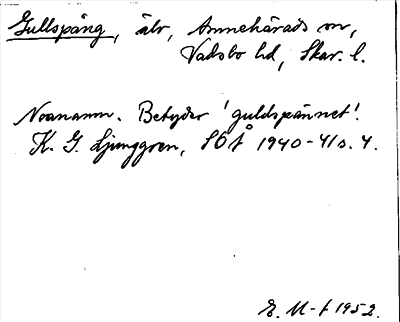 Gullspång, älv, Amnehärads sn,
Vadsbo hd, Skar. l.
Noanamn. Betyder 'guldspännet'.
K. G. Ljunggren, SOÅ 1940-41 s. 4.
E. M-t 1952.